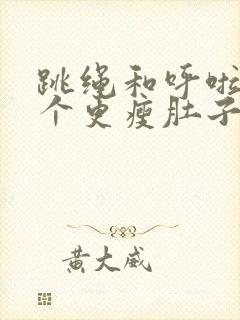 跳绳和呼啦
个更瘦肚子
黄大威